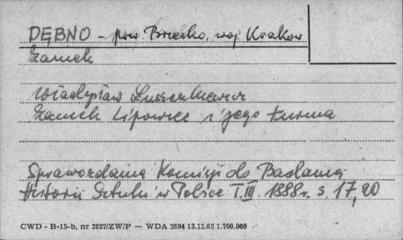 DĘBNO - pow. Brzesko, woj. Kraków
Zamek
Władysław Łuszczkiewicz
Zamek Lipowiec i jego turma
Sprawozdania Komisyi do Badania
Historii Sztuki w Polsce T. III. 1888 r. s. 17, 20
CWD - B-15-b, nr 2827/ZW/P — WDA 2694 13.12.62 1.700.000